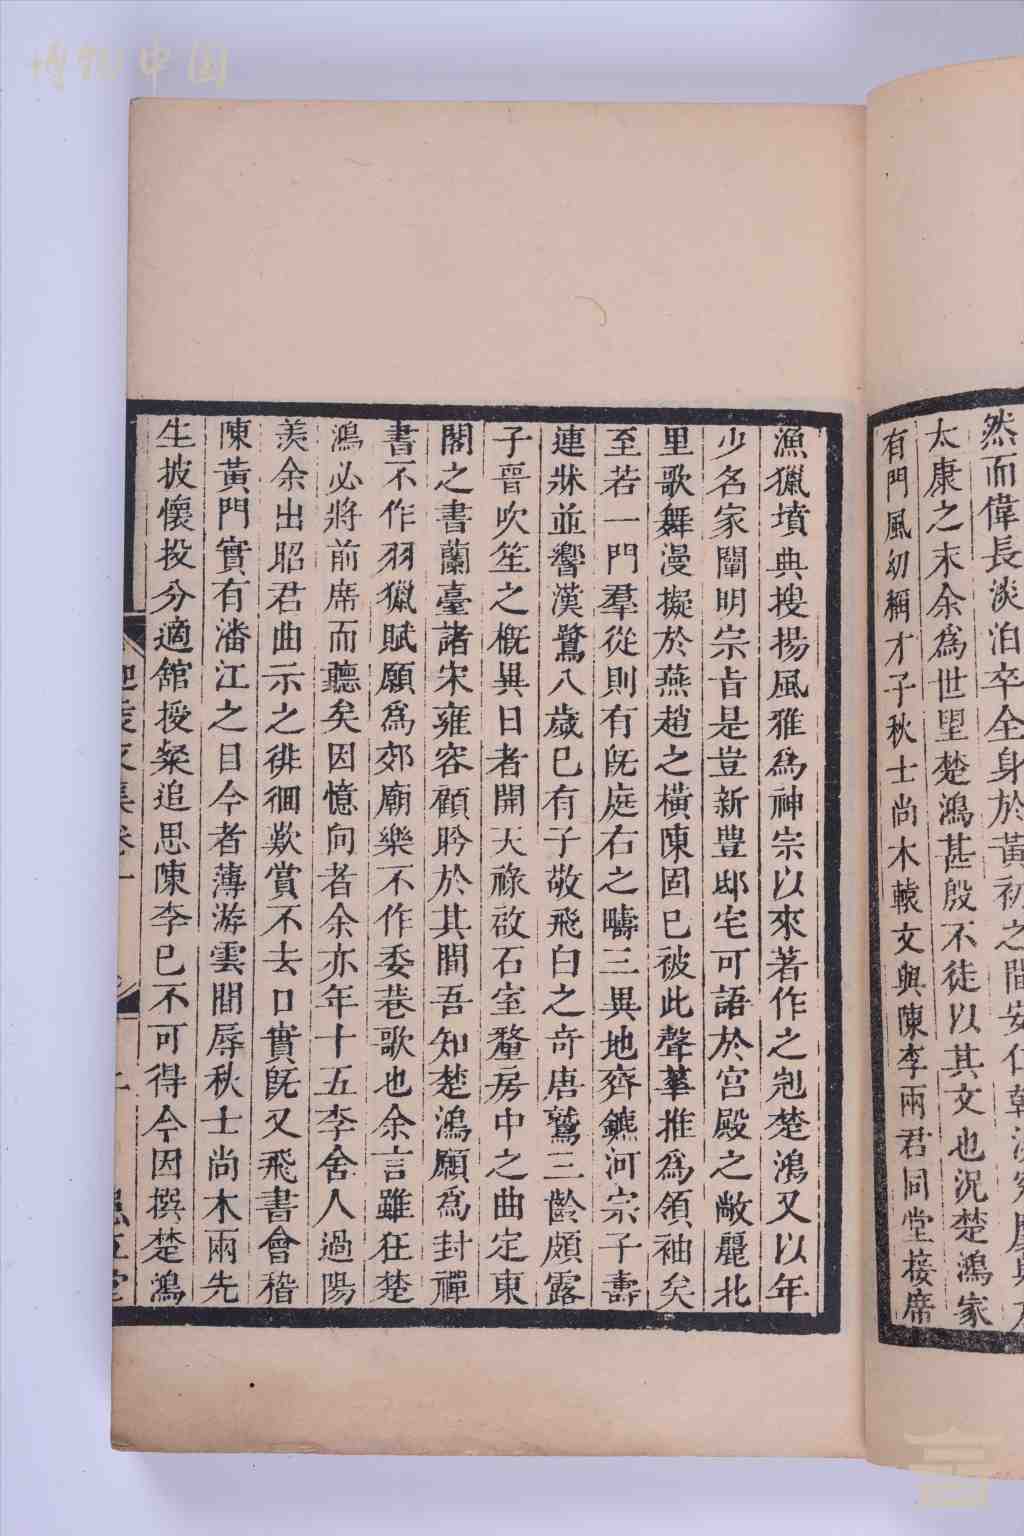 博物中国
然而偉長淡泊卒全身於黃初之間安仁
太康之末余為世里楚鴻甚殷不徒以其文也況楚鴻家
有門風幼稱才子秋士尚木轅文與陳李兩君同堂接席
漁獵墳典搜揚風雅為神宗以來著作之冠楚鴻又以年
少名家闡明宗旨是豈新豐邸宅可語於宮殿之敞麗北
里歌舞漫擬於燕趙之橫陳固已被此聲華推為領袖矣
至若一門羣從則有旣庭右之疇三異地齊鑣河宗子壽
連牀並響漢鷺八歲已有子敬飛白之奇唐鷟三齡頗露
子晉吹笙之槪異日者開天祿啟石室釐房中之曲定東
閣之書蘭臺諸宋雍容顧盻於其間吾知楚鴻願為封禪
書不作羽獵賦願為郊廟樂不作委巷歌也余言雖狂楚
鴻必將前席而聽矣因憶向者余亦年十五李舍人過陽
羨余出昭君曲示之徘徊歎賞不去口實旣又飛書會稽
陳黃門實有潘江之目今者薄游雲間辱秋士尚木兩先
生披懷投分適舘授粲追思陳李已不可得今因撰楚鴻
迦陵文集卷一